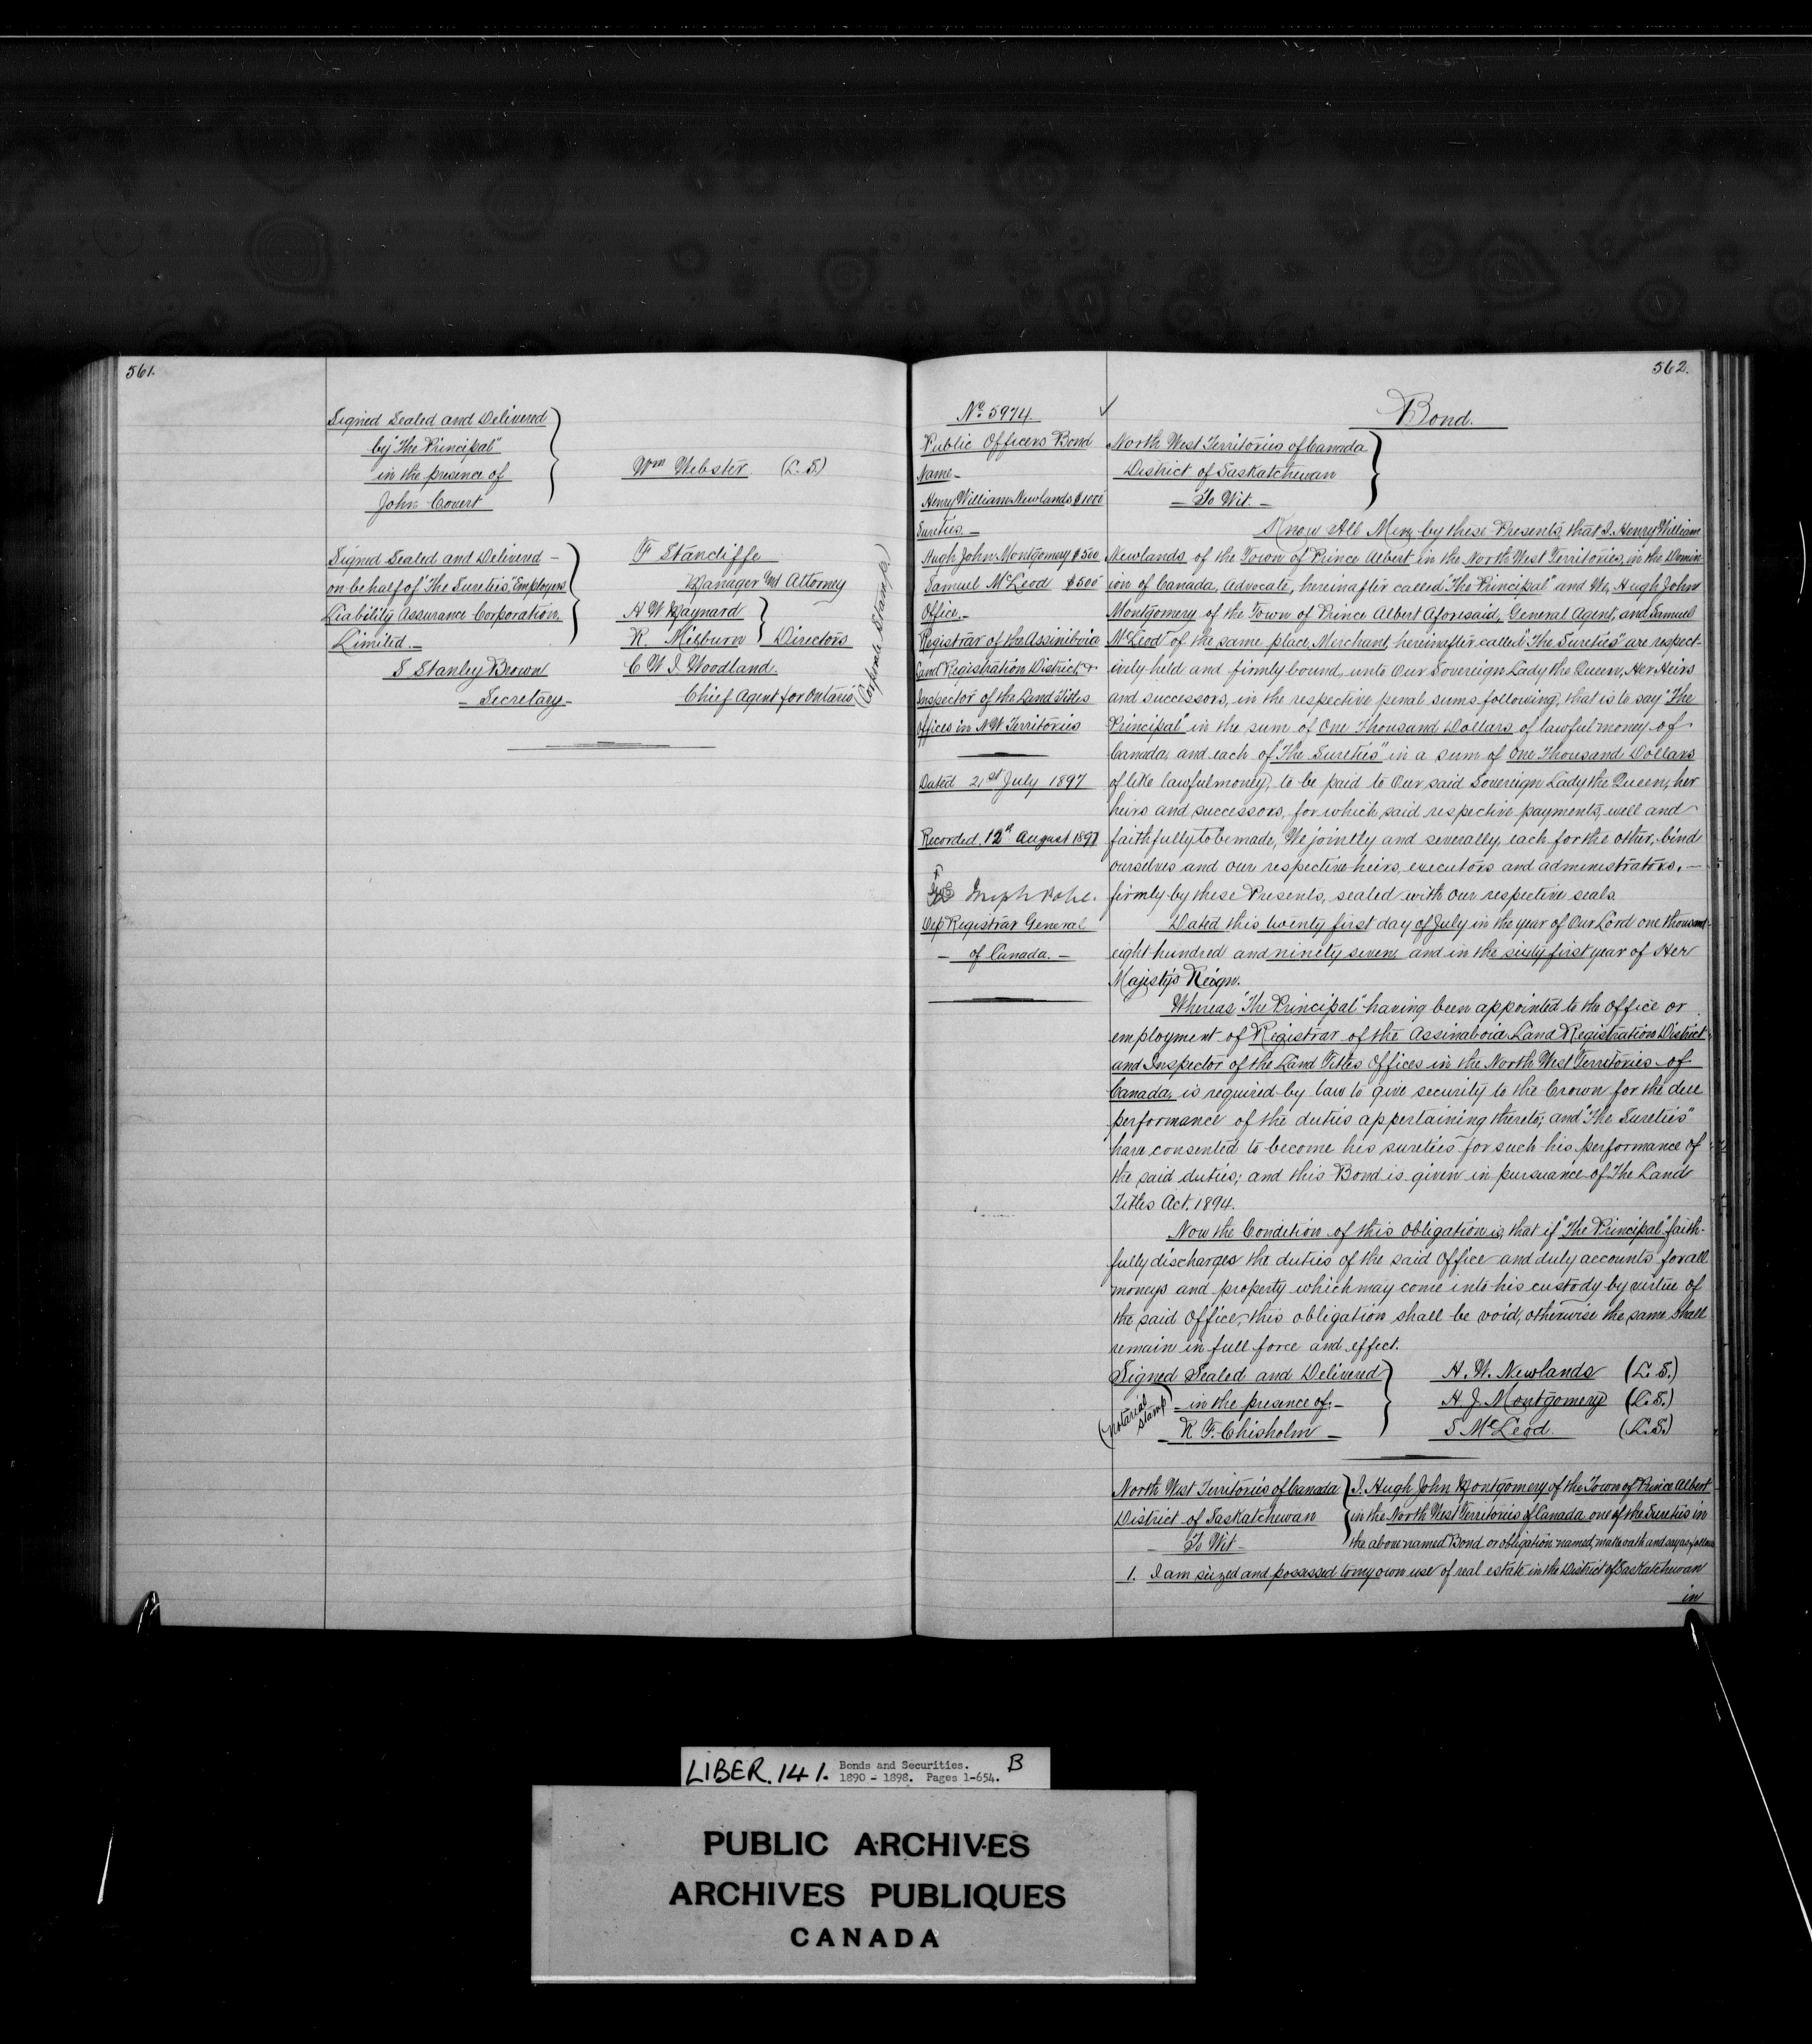 561.
Signed Sealed and Delivered
by "The Principal"
in the presence of
John Covert
Wm Webster (L.S.)
Signed Sealed and Delivered -
on behalf of "The Sureties" Employers
Liability Assurance Corporation
Limited. -
S Stanley Brown
- Secretary -
F Stancliffe
Manager and Attorney
H W Maynard
R. Milburn } Directors
C W I Woodland.
Chief Agent for Ontario
(Corporate Stamp.)
562.
No. 5974.
Public Officers Bond
Name -
Henry William Newlands $1000
Sureties. -
Hugh John Montgomery $500
Samuel McLeod $500
Office. -
Registrar of the Assiniboia
Land Registration District &
Inspector of the Land Titles
Offices in N W Territories
Dated 21st July 1897
Recorded. 12th August 1897
Joseph Pope.
Dep Registrar General
- of Canada. -
Bond.
North West Territories of Canada
District of Saskatchewan
- To Wit. -
Know All Men by these Presents, that I, Henry William
Newlands of the Town of Prince Albert in the North West Territories, in the Domin-
ion of Canada, Advocate, hereinafter called "The Principal" and We, Hugh John
Montgomery of the Town of Prince Albert Aforesaid, General Agent, and Samuel
McLeod of the same place, Merchant, hereinafter called "The Sureties" are respect-
ively held and firmly bound, unto Our Sovereign Lady the Queen, Her Heirs
and successors, in the respective penal sums following, that is to say "The
Principal" in the sum of One Thousand Dollars of lawful money of
Canada, and each of "The Sureties" in a sum of One Thousand Dollars
of like lawful money, to be paid to Our said Sovereign Lady the Queen, her
heirs and successors, for which said respective payments, well and
faithfully to be made, We jointly and severally, each for the other, bind
ourselves and our respective heirs, executors and administrators, -
firmly by these Presents, sealed with our respective seals.
Dated this twenty first day of July in the year of Our Lord one thousand
eight hundred and ninety seven and in the sixty first year of Her
Majesty's Reign.
Whereas "The Principal" having been appointed to the Office or
employment of Registrar of the Assinaboia Land Registration District
and Inspector of the Land Titles Offices in the North West Territories of
Canada, is required by law to give security to the Crown for the due
performance of the duties appertaining thereto; and "The Sureties"
have consented to become his sureties for such his performance of
the said duties; and this Bond is given in pursuance of The Land
Titles Act, 1894.
Now the Condition of this obligation is, that if "The Principal" faith-
fully discharges the duties of the said Office and duly accounts for all
moneys and property which may come into his custody by virtue of
the said Office, this obligation shall be void, otherwise the same shall
remain in full force and effect.
Signed Sealed and Delivered
- in the presence of: -
R. F. Chisholm -
(Notarial Stamp)
H. W. Newlands (L.S.)
H. J. Montgomery (L.S.)
S McLeod. (L.S.)
North West Territories of Canada
District of Saskatchewan
- To Wit -
I, Hugh John Montgomery of the Town of Prince Albert
in the North West Territories of Canada one of the Sureties in
the above named Bond or obligation named, make oath and say as follows
1. I am seized and possessed to my own use of real estate in the District of Saskatchewan
in
LIBER. 141. Bonds and Securities. B
1890 - 1898. Pages 1-654.
PUBLIC ARCHIVES
ARCHIVES PUBLIQUES
CANADA